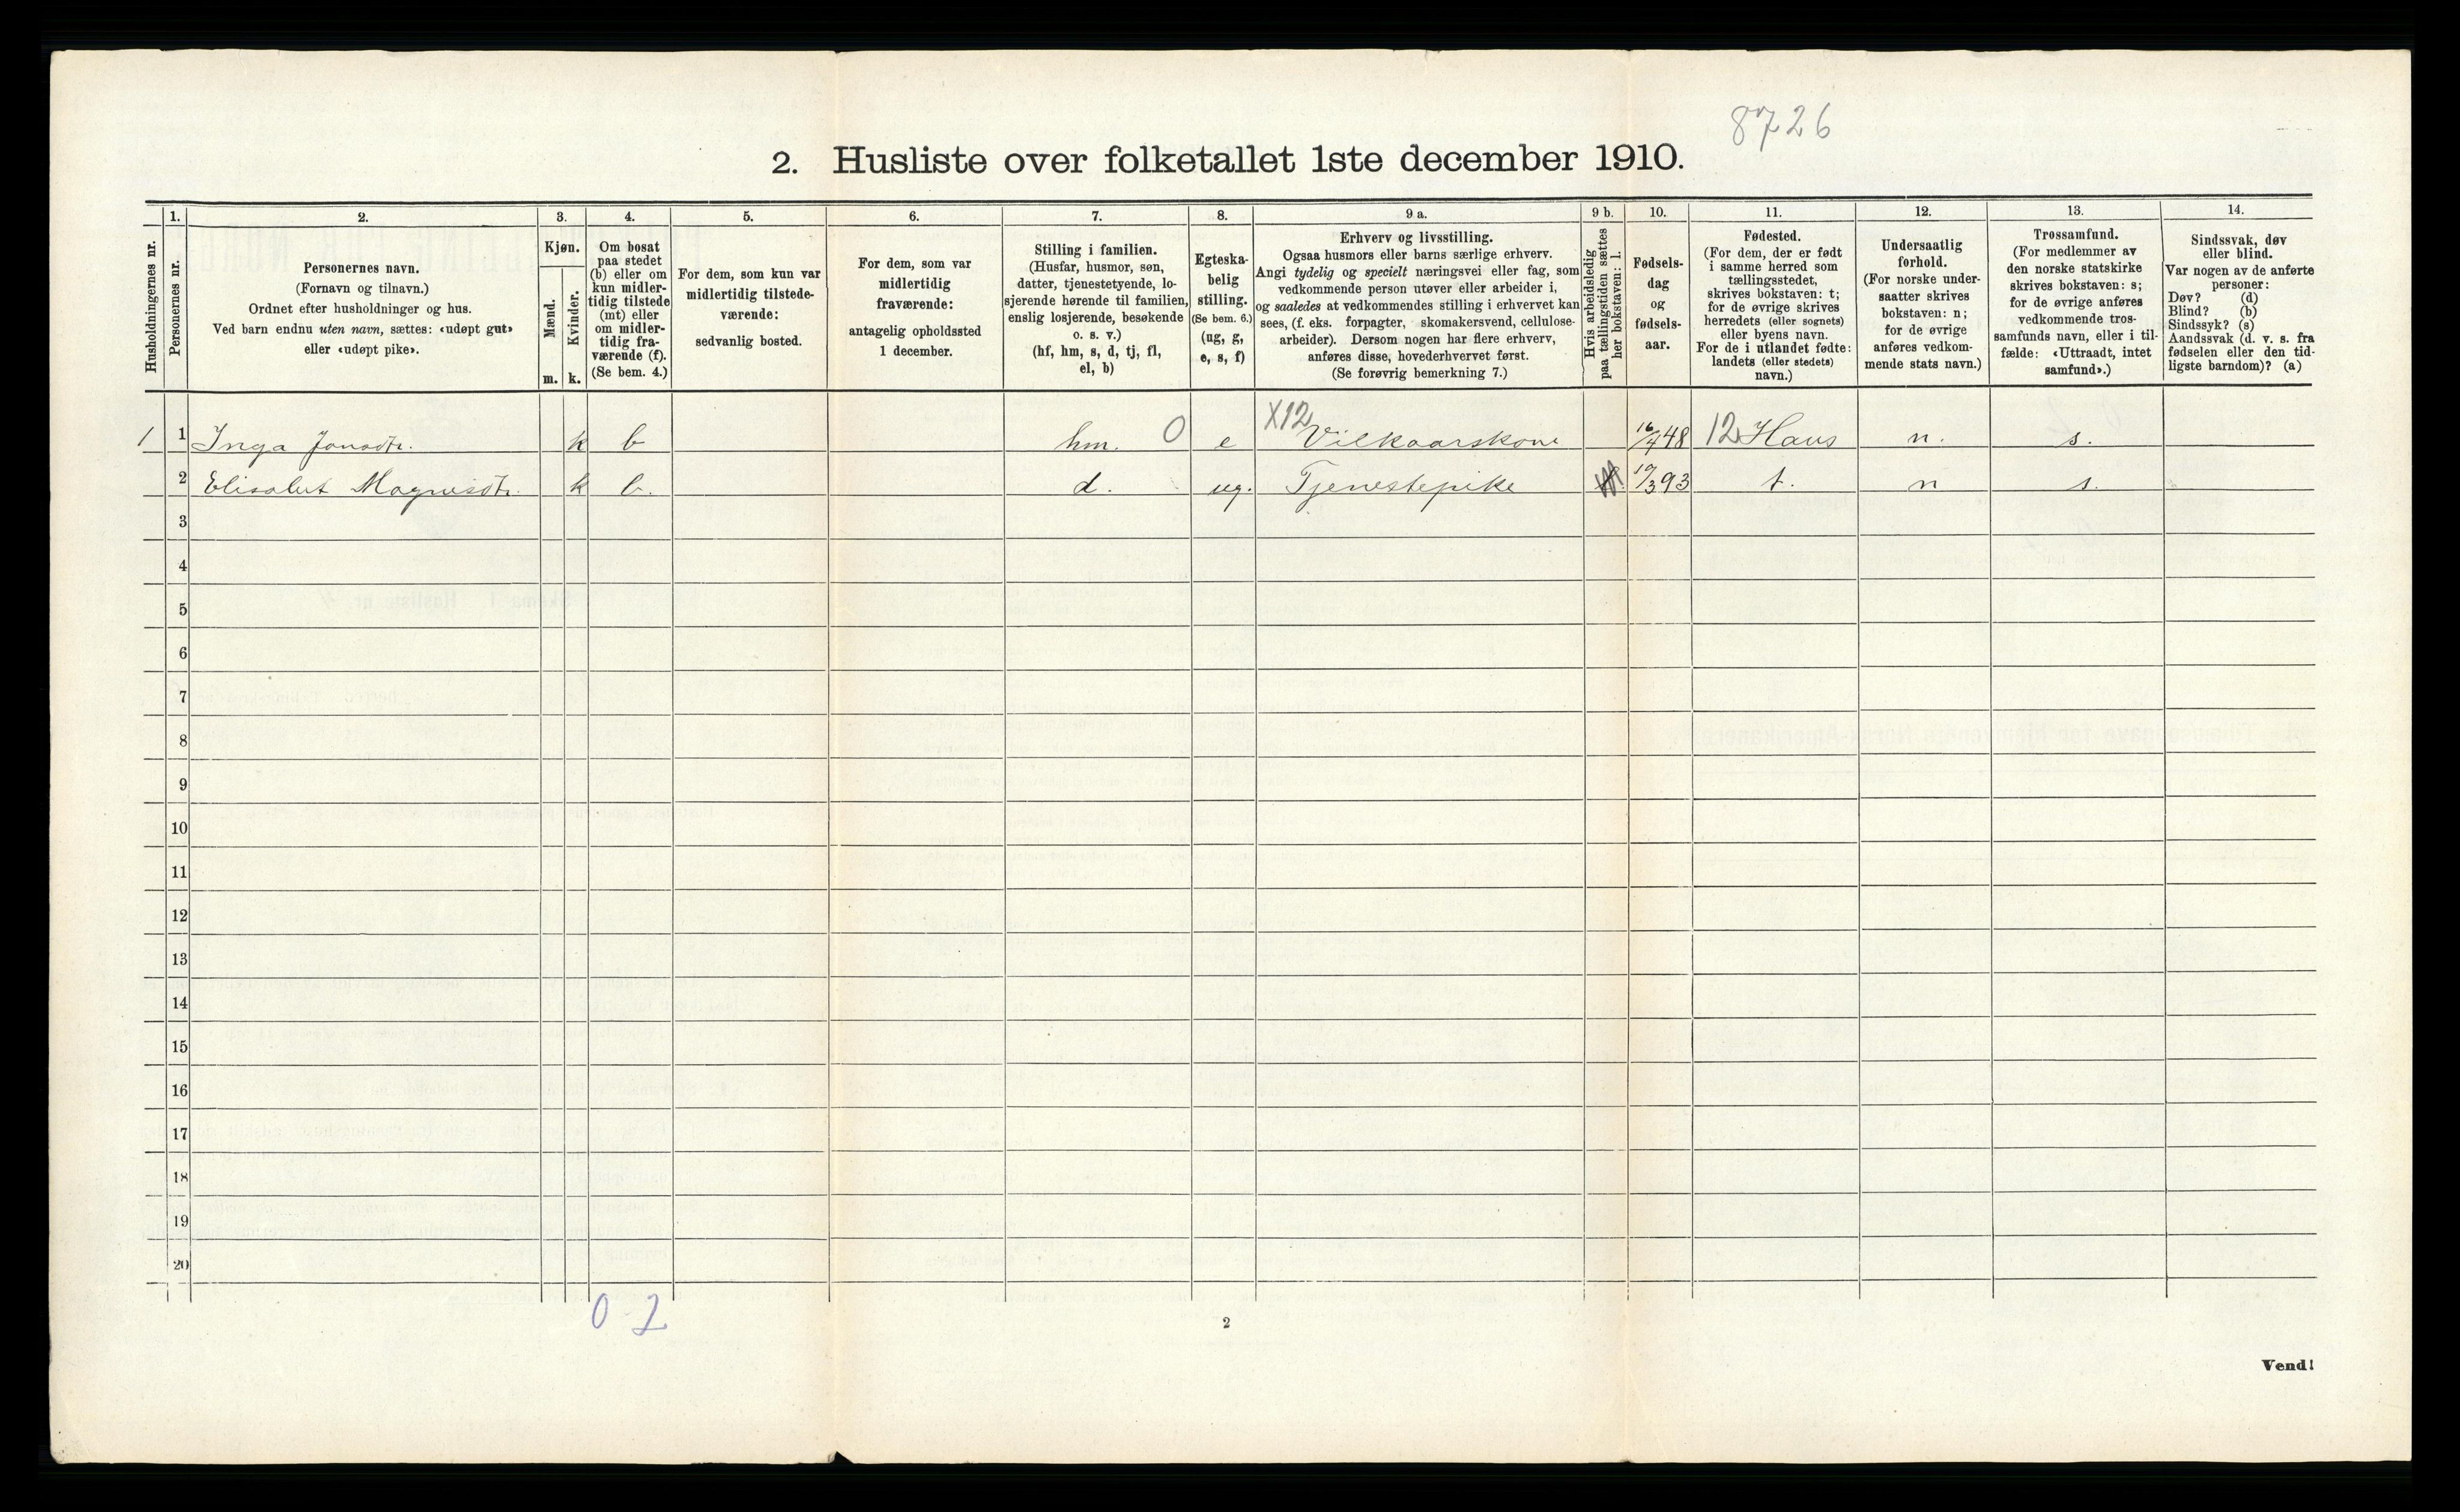 8726
2. Husliste over folketallet 1ste december 1910.
1. 2. 3. 4. 5. 6. 7. 8. 9 a. 9 b. 10. 11. 12. 13. 14.
Husholdningernes nr.
Personernes nr.
Personernes navn.
(Fornavn og tilnavn.)
Ordnet efter husholdninger og hus.
Ved barn endnu uten navn, sættes: «udøpt gut»
eller «udøpt pike».
Kjøn.
Mænd.
Kvinder.
m. k.
Om bosat
paa stedet
(b) eller om
kun midler-
tidig tilstede
(mt) eller
om midler-
tidig fra-
værende (f).
(Se bem. 4.)
For dem, som kun var
midlertidig tilstede-
værende:
sedvanlig bosted.
For dem, som var
midlertidig
fraværende:
antagelig opholdssted
1 december.
Stilling i familien.
(Husfar, husmor, søn,
datter, tjenestetyende, lo-
sjerende hørende til familien,
enslig losjerende, besøkende
o. s. v.)
(hf, hm, s, d, tj, fl,
el, b)
Egteska-
belig
stilling.
(Se bem. 6.)
(ug, g,
e, s, f)
Erhverv og livsstilling.
Ogsaa husmors eller barns særlige erhverv.
Angi tydelig og specielt næringsvei eller fag, som
vedkommende person utøver eller arbeider i,
og saaledes at vedkommendes stilling i erhvervet kan
sees, (f. eks. forpagter, skomakersvend, cellulose-
arbeider). Dersom nogen har flere erhverv,
anføres disse, hovederhvervet først.
(Se forøvrig bemerkning 7.)
Hvis arbeidsledig
paa tællingstiden sættes
her bokstaven: l.
Fødsels-
dag
og
fødsels-
aar.
Fødested.
(For dem, der er født
i samme herred som
tællingsstedet,
skrives bokstaven: t;
for de øvrige skrives
herredets (eller sognets)
eller byens navn.
For de i utlandet fødte:
landets (eller stedets)
navn.)
Undersaatlig
forhold.
(For norske under-
saatter skrives
bokstaven: n;
for de øvrige
anføres vedkom-
mende stats navn.)
Trossamfund.
(For medlemmer av
den norske statskirke
skrives bokstaven: s;
for de øvrige anføres
vedkommende tros-
samfunds navn, eller i til-
fælde: «Uttraadt, intet
samfund».)
Sindssvak, døv
eller blind.
Var nogen av de anførte
personer:
Døv? (d)
Blind? (b)
Sindssyk? (s)
Aandssvak (d. v. s. fra
fødselen eller den tid-
ligste barndom)? (a)
1 1 Inga Jonsdtr. k b hm. 0 e X12 Vilkaarskone 16/4 48 12 Haus n. s.
2 Elisabet Magnusdtr. k b. d. ug. Tjenestepike 19/3 93 t. n s.
3
4
5
6
7
8
9
10
11
12
13
14
15
16
17
18
19
20
0 2
2
Vend!